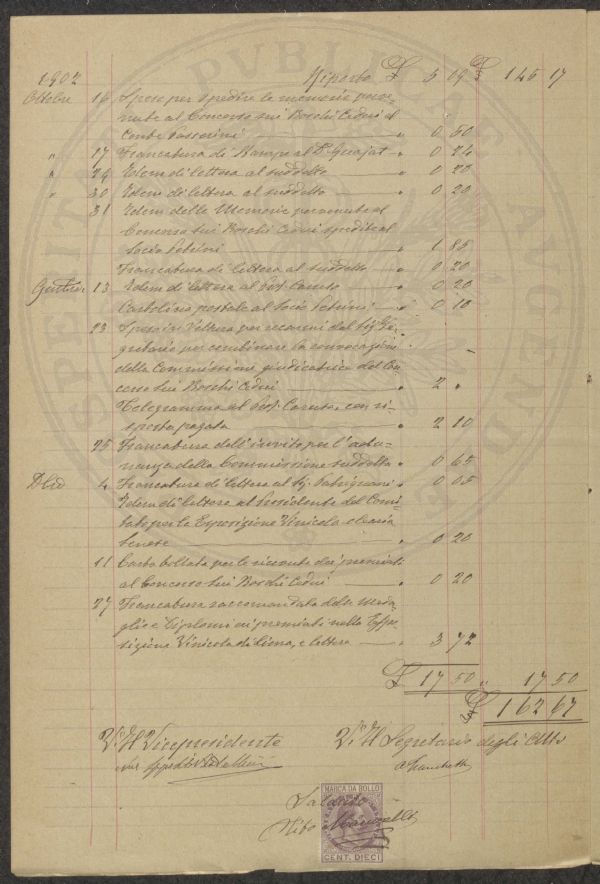 1902 Riporto £ 5 09 £ 145 17
Ottobre 16 Spese per spedire le memorie perve-
nute al Concorso sui Boschi Cedui al
Conte Passerini " 0 50
" 17 Francatura di Stampe al Dr Guajat " 0 24
" 29 Idem di lettera al suddetto " 0 20
" 30 Idem di lettera al suddetto " 0 20
31 Idem delle Memorie pervenute al
Concorso sui Boschi Cedui spedite al
Socio Petrini " 1 85
Francatura di lettera al suddetto " 0 20
13 Idem di lettera al Prof. Caruso " 0 20
Cartolina postale al Socio Petrini " 0 10
23 Spese in Vettura per recarmi dal Sig. Se-
gretario per combinare la convocazione
della Commissione giudicatrice del Con-
corso sui Boschi Cedui " 2 "
Telegramma al Prof. Caruso, con ri-
sposta pagata " 2 10
25 Francatura dell'invito per l'adu-
nanza della Commissione suddetta " 0 65
4 Francatura di lettera al Sig. " 0 05
Idem di lettera al Presidente del Comi-
tato per la Esposizione Vinicola
Senese " 0 20
11 Carta bollata per le ricevute dei premiati
al Concorso sui Boschi Cedui " 0 20
27 Francatura raccomandata delle Meda-
glie e Diplomi ai premiati nella Espo-
sizione Vinicola di Siena, e lettera " 3 72
£ 17 50 " 17 50
£ 162 67
Vo Il Vicepresidente Vo Il Segretario degli Atti
Saldato
MARCA DA BOLLO
CENT. DIECI